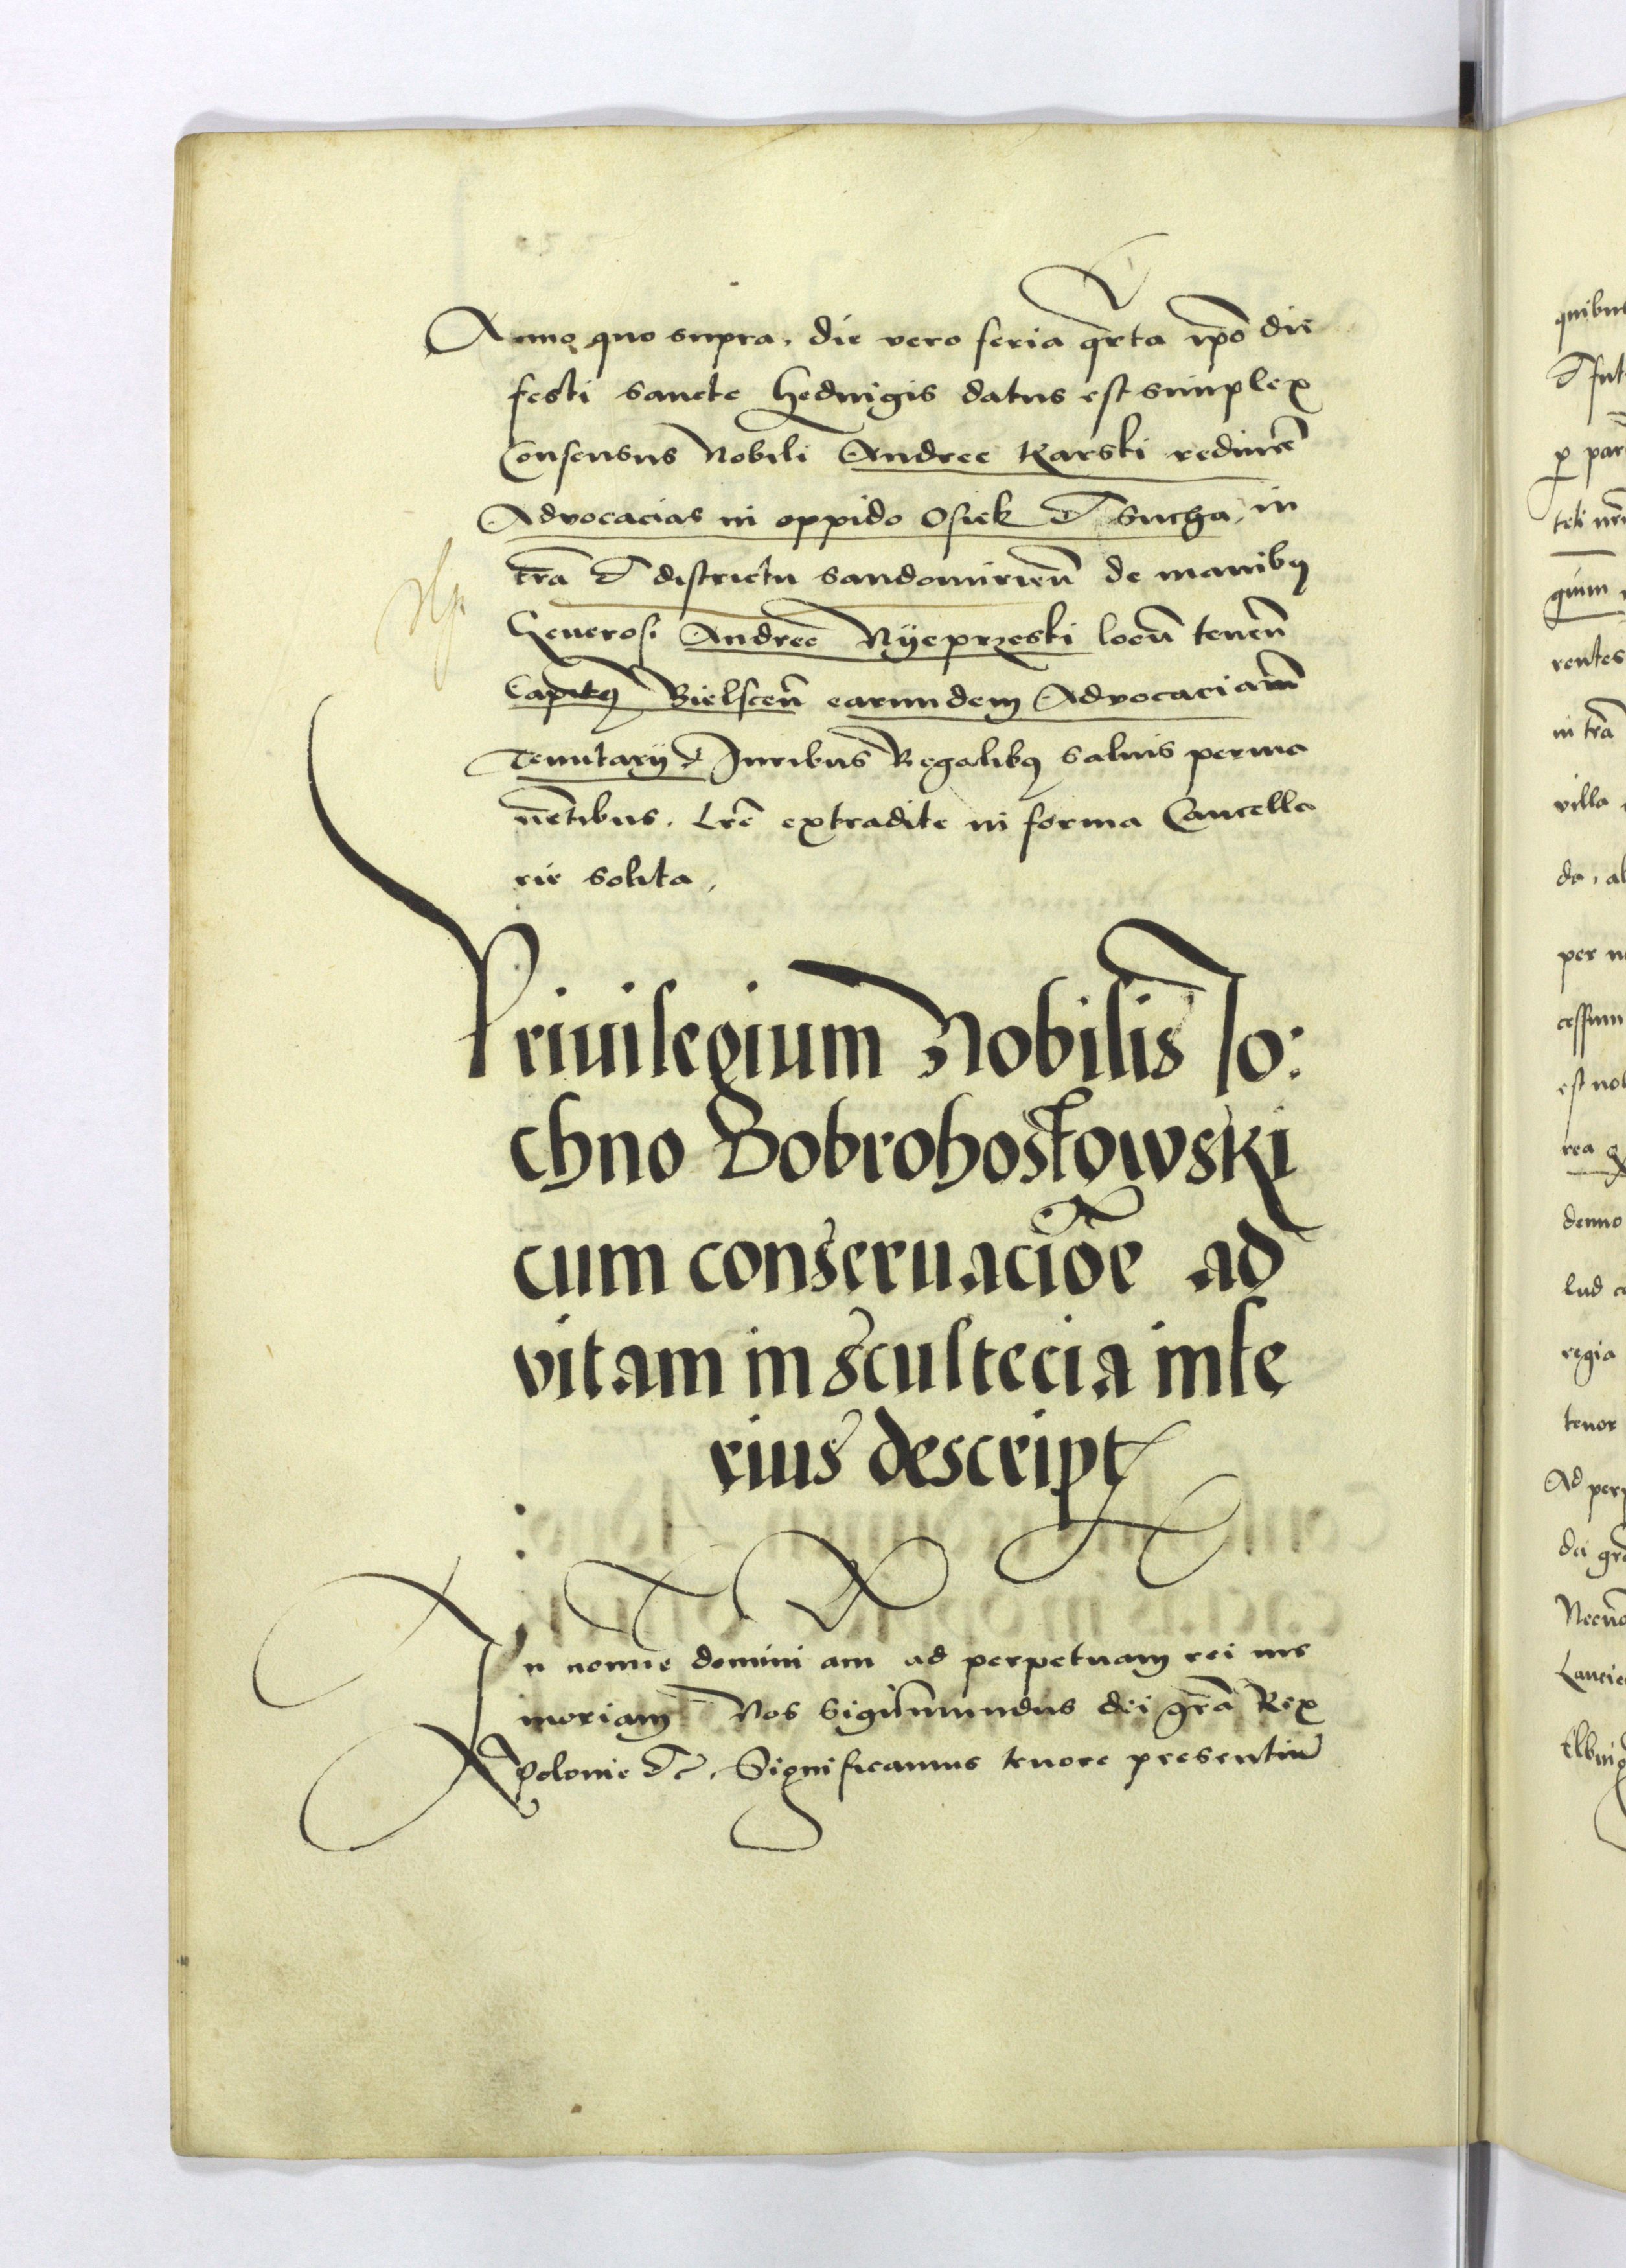 Anno quo supra, die vero feria qrta ipo die
festi sancte Hedvigis datus est simplex
Consensus Nobili Andree Karski redimēd
Advocacias in oppido Osiek & Sucha, in
trā & districtu sandomirieñ de manibꝫ
Generosi Andree Nyeprzeski locū teneñ
Capitꝫ Bielsceñ earundem Advocaciarū
Tenutarÿ & Iuribus Regalibꝫ salvis perma
nētibus. Lrē extradite in forma Cancella
rie solita,
Privilegium Nobilis Jo:
chno Bobrohostowski
cum conservaciōe ad
vitam in scultecia infe
rius descript
In nomīe domini am ad perpetuam rei me
moriam Nos Sigismundus dei grā Rex
Polonie &c. Significamus tenore presentiū
quibus
p par
rentes
in trā
villa
per
est nob
rea
denuo
regia
tenor
Ad perp
dei grā
Elbing